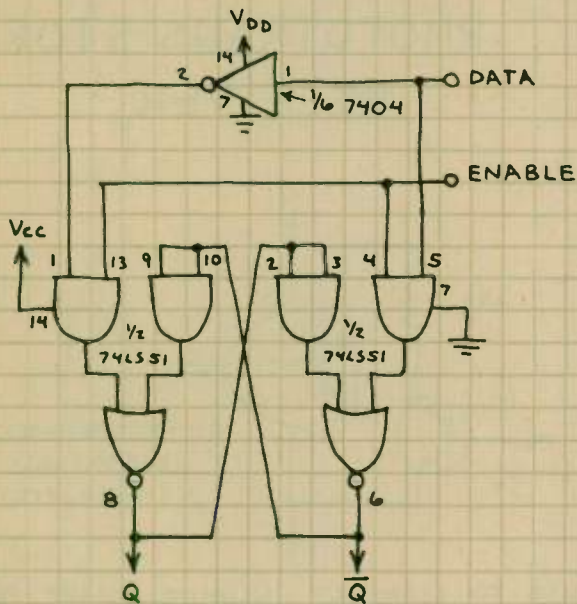 VDD
14
2
1
7
1/6 7404
DATA
ENABLE
Vcc
1
13
9
10
2
3
4
5
7
14
1/2
74LS51
1/2
74LS51
8
6
Q
Q̅